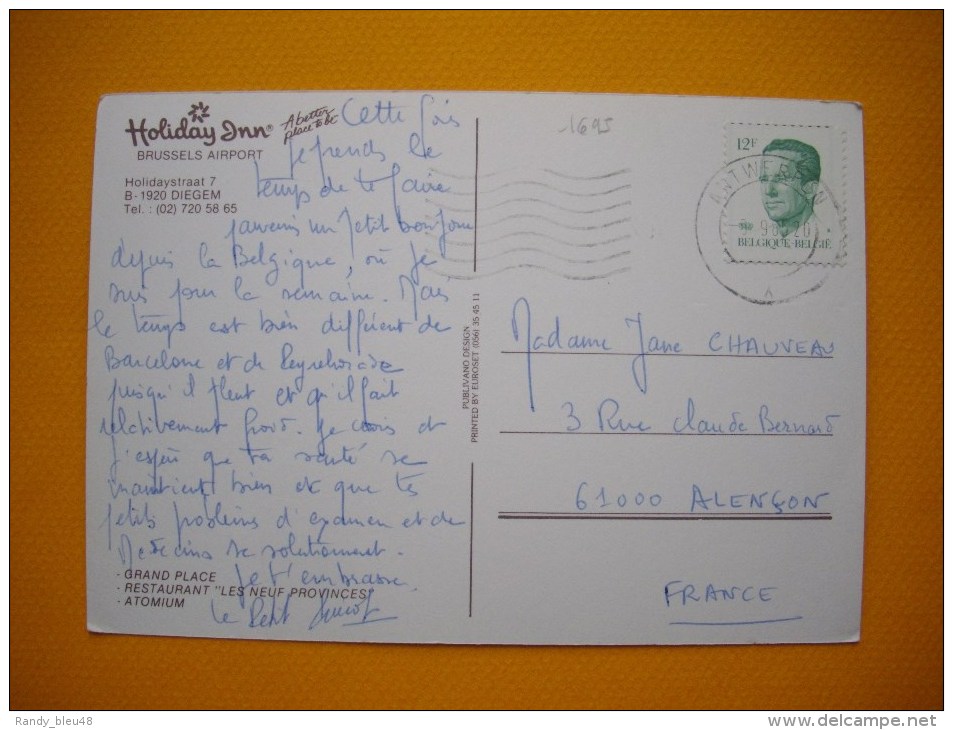 Holiday Inn®
A better place to be
BRUSSELS AIRPORT
Holidaystraat 7
B-1920 DIEGEM
Tel. : (02) 720 58 65
Cette fois
je prends le
temps de te faire
parvenir un petit bonjour
depuis la Belgique, où je
suis pour la semaine. Mais
le temps est bien différent de
Barcelone et de
puisqu'il pleut et qu'il fait
relativement froid. Je crois et
j'espère que ta santé se
maintient bien et que tes
petits problèmes d'examen et de
Médecins se solutionnent.
Je t'embrasse.
le Petit
- GRAND PLACE
- RESTAURANT "LES NEUF PROVINCES"
- ATOMIUM
PUBLIVANO DESIGN
PRINTED BY EUROSET (056) 35 45 11
1695
12F
BELGIQUE-BELGIË
ANTWERPEN
Madame Jane CHAUVEAU
3 Rue Claude Bernard
61000 ALENÇON
FRANCE
Randy_bleu48
delcampe.net